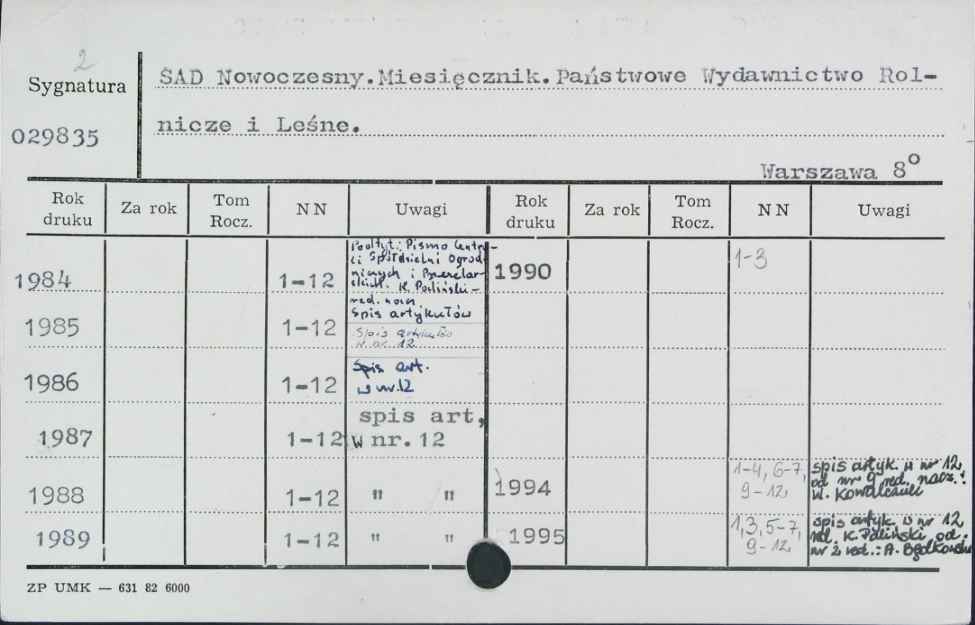 2
Sygnatura
029835
SAD Nowoczesny.Miesięcznik.Państwowe Wydawnictwo Rol-
nicze i Leśne.
Warszawa 8°
Rok druku Za rok Tom Rocz. NN Uwagi Rok druku Za rok Tom Rocz. NN Uwagi
1984 1-12
Pismo
Ogrod
niczych i
K. Paliński-
red. nacz.
Spis artykułów
1990 1-3
1985 1-12 Spis artykułów
w nr. 12
1986 1-12 Spis art.
w nr.12
1987 1-12 spis art,
w nr.12
1988 1-12 " "
1994 1-4, 6-7,
9-12,
spis artyk. w nr 12,
od nr 9 red. nacz.:
W.
1989 1-12 " "
1995 1,3,5-7,
9-12,
spis artyk. w nr 12,
red. K. Paliński od.
nr 2 red.: A.
ZP UMK — 631 82 6000